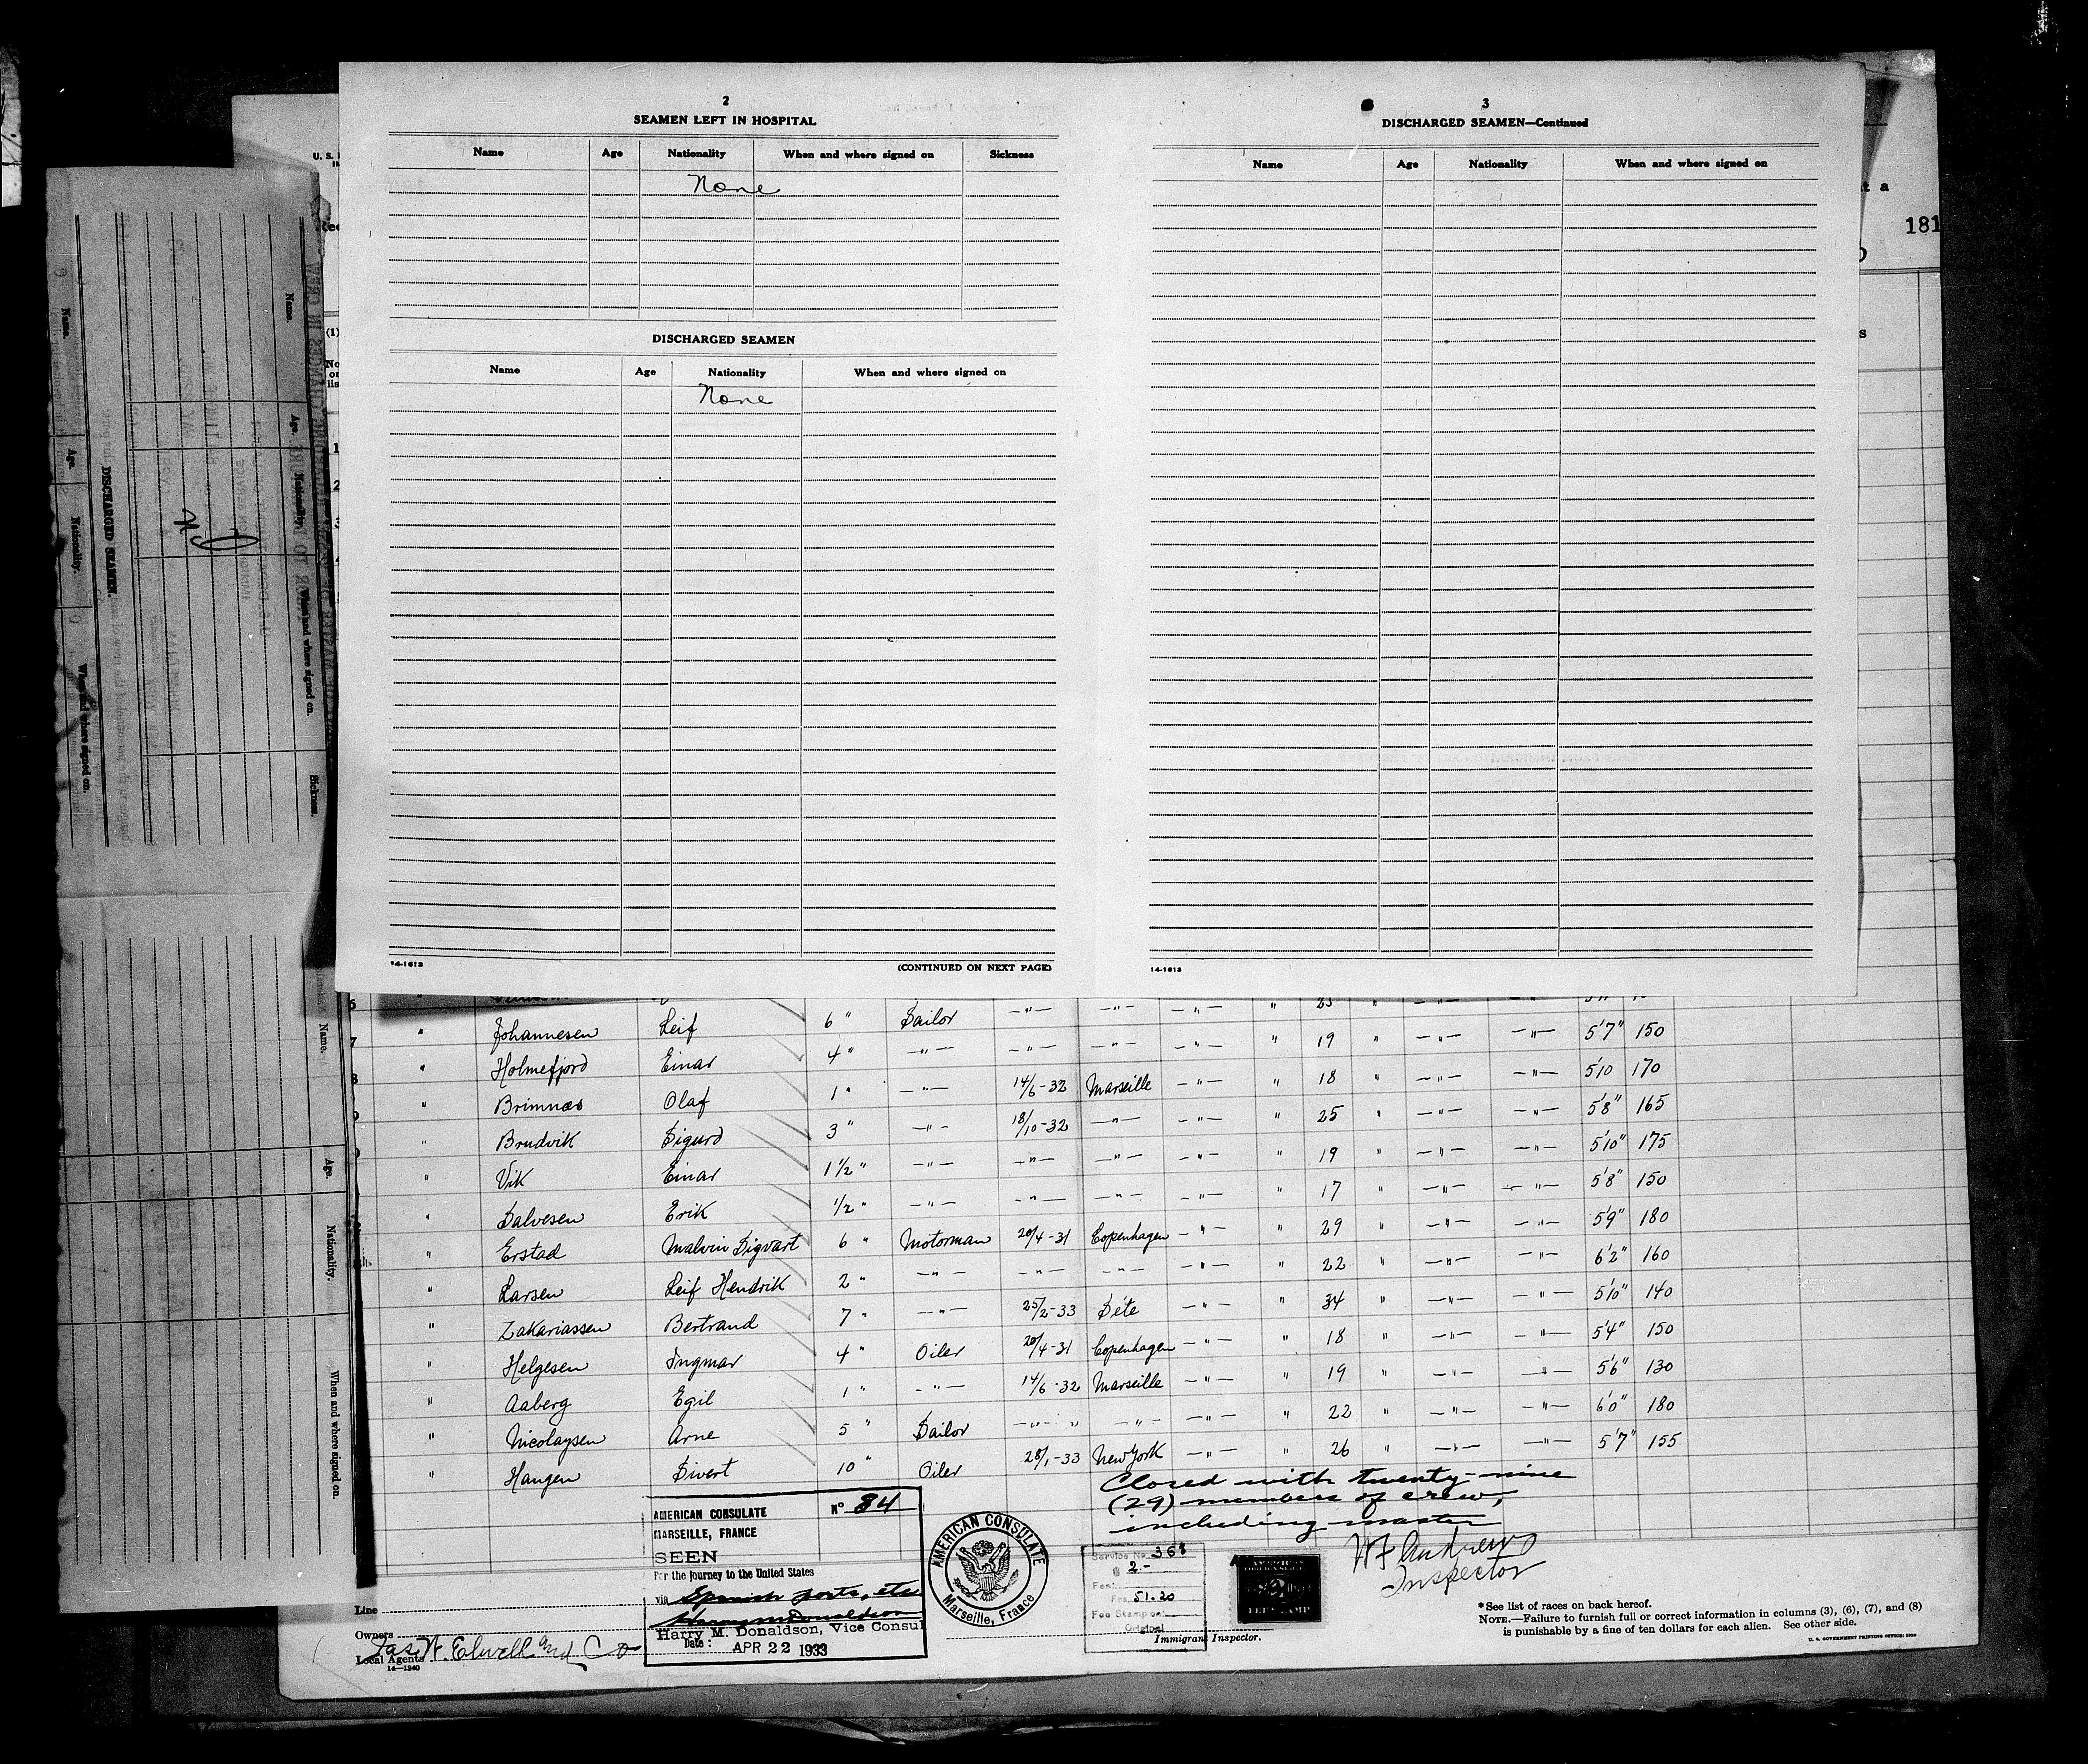 2
SEAMEN LEFT IN HOSPITAL
Name Age Nationality When and where signed on Sickness
None
DISCHARGED SEAMEN
Name Age Nationality When and where signed on
None
14-1613 (CONTINUED ON NEXT PAGE)
3
DISCHARGED SEAMEN—Continued
Name Age Nationality When and where signed on
14-1613
181
" Johannesen Leif 6 " Sailor —"— —"— —"— " 19 " —"— —"— 5'7" 150
" Holmefjord Einar 4 " —"— —"— —"— —"— " 18 " —"— —"— 5'10 170
" Brimnes Olaf 1 " —"— 14/6-32 Marseille —"— " 25 " —"— —"— 5'8" 165
" Brudvik Sigurd 3 " —"— 18/10-32 —"— —"— " 19 " —"— —"— 5'10" 175
" Vik Einar 1 1/2 " —"— —"— —"— —"— " 17 " —"— —"— 5'8" 150
" Salvesen Erik 1/2 " —"— —"— —"— —"— " 29 " —"— —"— 5'9" 180
" Erstad Malvin Sigvart 6 " Motorman 20/4-31 Copenhagen —"— " 22 " —"— —"— 6'2" 160
" Larsen Leif Hendrik 2 " —"— —"— —"— —"— " 34 " —"— —"— 5'10" 140
" Zakariassen Bertrand 7 " —"— 25/2-33 Séte —"— " 18 " —"— —"— 5'4" 150
" Helgesen Ingmar 4 " Oiler 20/4-31 Copenhagen —"— " 19 " —"— —"— 5'6" 130
" Aaberg Egil 1 " —"— 14/6-32 Marseille —"— " 22 " —"— —"— 6'0" 180
" Nicolaysen Arne 5 " Sailor —"— " —"— —"— " 26 " —"— —"— 5'7" 155
" Haugen Sivert 10 " Oiler 28/1-33 New York —"—
Closed with twenty-nine
(29) members of crew,
including master
W F Andrews
Inspector
AMERICAN CONSULATE No 84
MARSEILLE, FRANCE
SEEN
For the journey to the United States
via Spanish ports, etc
Harry M Donaldson
Harry M. Donaldson, Vice Consul
Date: APR 22 1933
AMERICAN CONSULATE
Marseille, France
Service No. 368
$ 2.-
Fee:
Frs. 51.20
Fee Stamp on
Original
Immigrant Inspector.
Line
Owners
Local Agents Jas W. Elwell and Co
14—1240
*See list of races on back hereof.
NOTE.—Failure to furnish full or correct information in columns (3), (6), (7), and (8)
is punishable by a fine of ten dollars for each alien. See other side.
U. S. GOVERNMENT PRINTING OFFICE:
Name. Age. Nationality. When and where signed on. Sickness.
DISCHARGED SEAMEN.
Name. Age. Nationality. When and where signed on.
Name. Age. Nationality. When and where signed on.